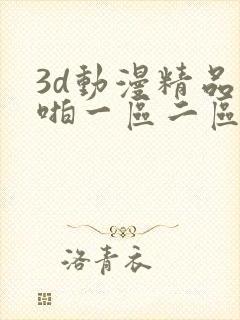 3d動漫精品
啪一區二區
洛青衣